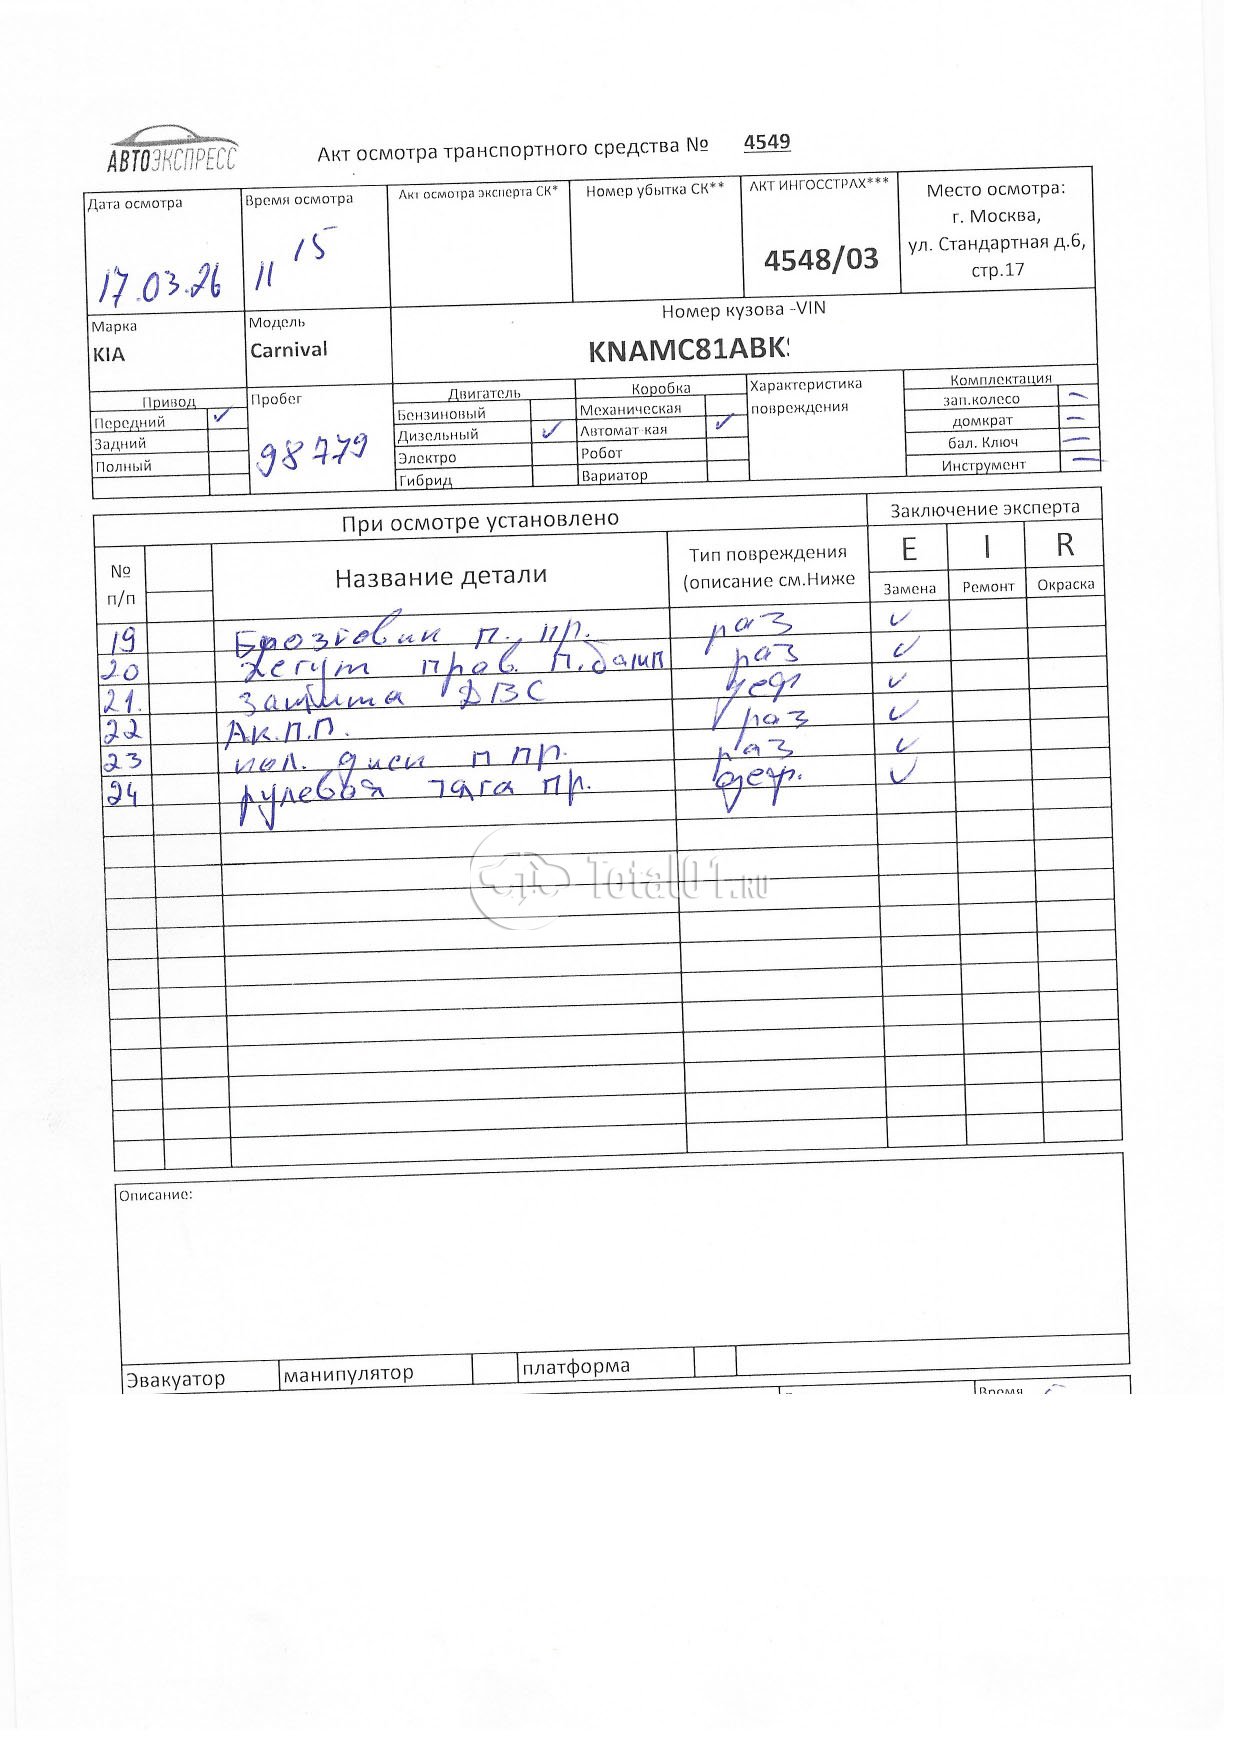 АВТОЭКСПРЕСС
Акт осмотра транспортного средства № 4549
Дата осмотра
17.03.26
Время осмотра
11 15
Акт осмотра эксперта СК*
Номер убытка СК**
АКТ ИНГОССТРАХ***
4548/03
Место осмотра:
г. Москва,
ул. Стандартная д.6,
стр.17
Марка
KIA
Модель
Carnival
Номер кузова -VIN
KNAMC81ABK
Привод
Передний ✓
Задний
Полный
Пробег
98779
Двигатель
Бензиновый
Дизельный ✓
Электро
Гибрид
Коробка
Механическая
Автомат кая ✓
Робот
Вариатор
Характеристика
повреждения
Комплектация
зап.колесо –
домкрат –
бал. Ключ –
Инструмент –
При осмотре установлено
Заключение эксперта
№
п/п
Название детали
Тип повреждения
(описание см.Ниже
E I R
Замена Ремонт Окраска
19 Брызговик п. пр. раз ✓
20 жгут прав. п. раз ✓
21. Защита ДВС деф ✓
22 Ак.П.П. раз ✓
23 кол. диск п пр. раз ✓
24 рулевая тяга пр. деф. ✓
Total01.RU
Описание:
Эвакуатор манипулятор платформа
Время